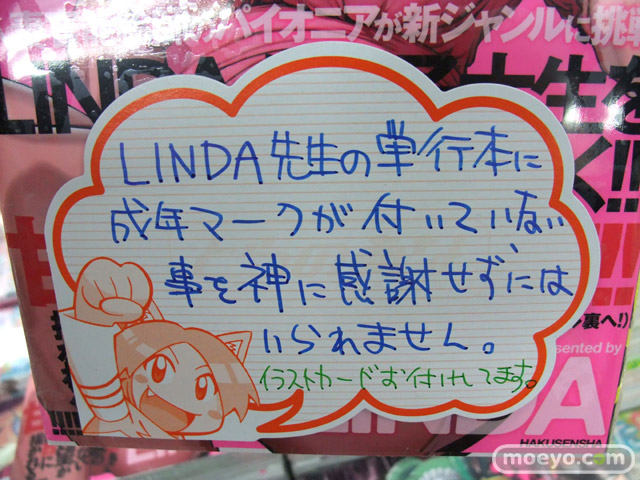 パイオニアが新ジャンルに挑
LINDA
LINDA先生の単行本に
成年マークが付いていない
事を神に感謝せずには
いられません。
イラストカードお付けしてます。
裏へ!)
esented by
HAKUSENSHA
moeyo.com